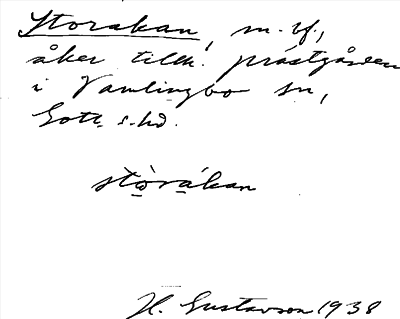 Storåkan, m. bf.,
åker tillh. prästgården
i Vamlingbo sn,
Gotl. s. hd.
stòråkan
H. Gustavson 1938